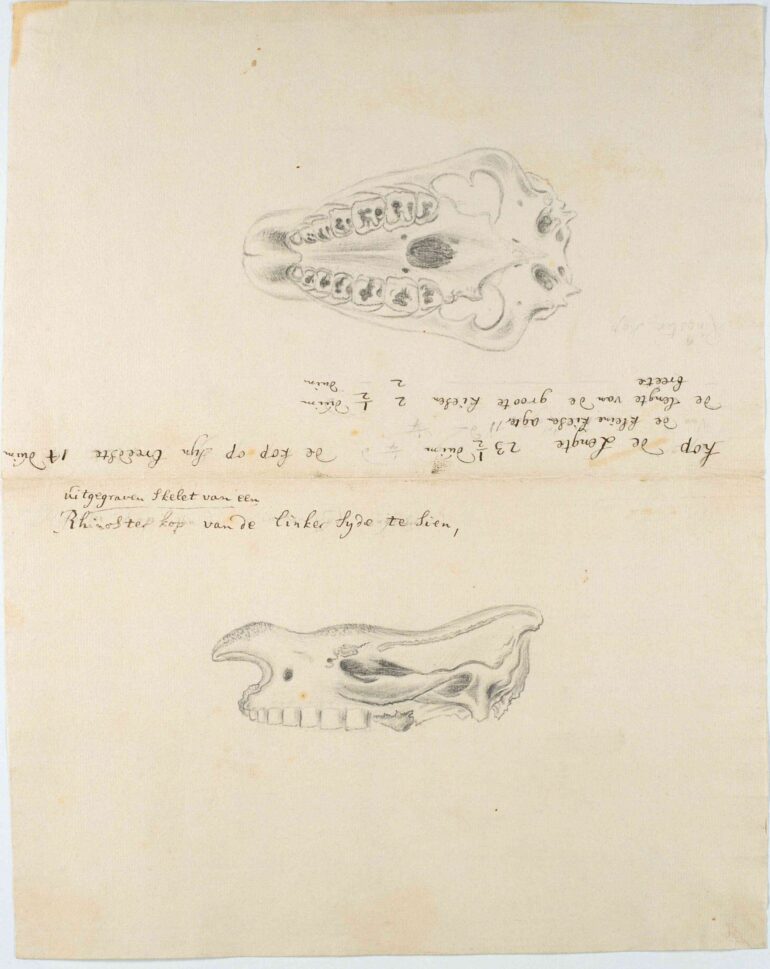 kop de Lengte 23 1/2 duim de kop op syn breedste 14 duim
de kleine kiesen agte
de Lengte van de groote kiesen 2 1/2 duim
breete 2 duim
uitgegraven skelet van een
Rhinoster kop van de linker syde te sien,